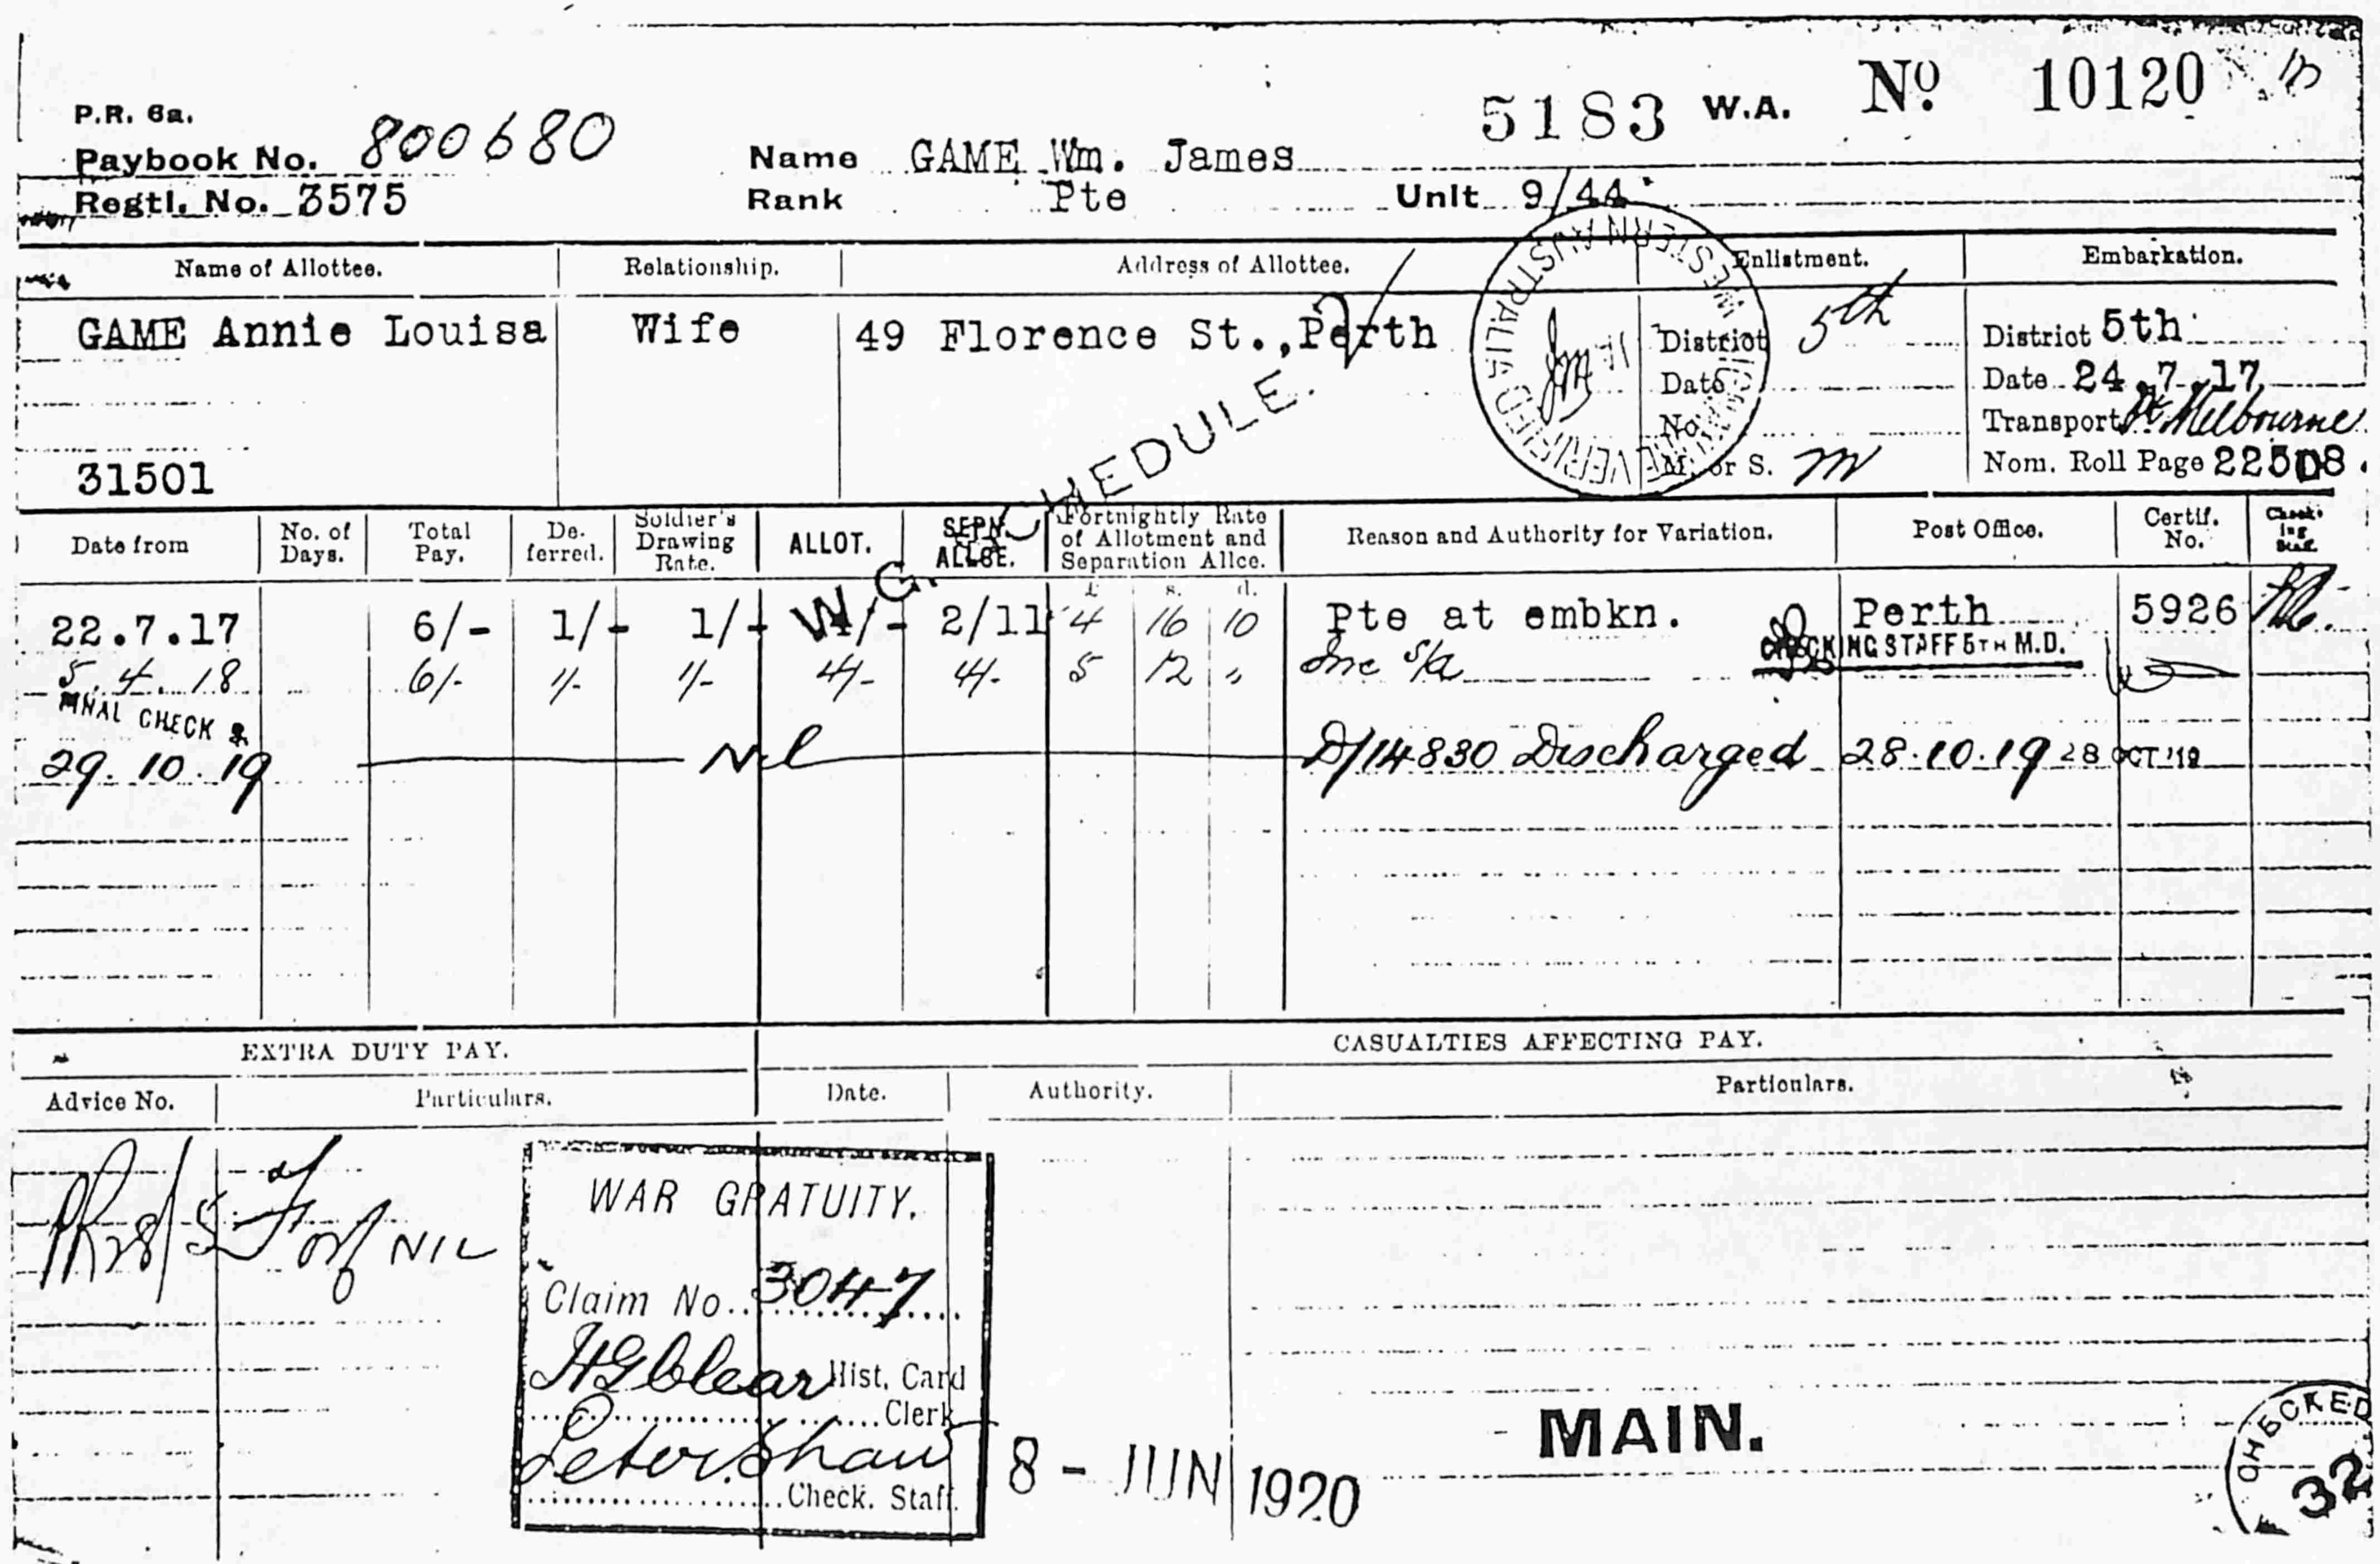 5183 W.A. No. 10120
P.R. 6a.
Paybook No. 800680 Name GAME Wm. James
Regtl. No. 3575 Rank Pte Unit 9/44
Name of Allottee. Relationship. Address of Allottee. Enlistment. Embarkation.
GAME Annie Louisa Wife 49 Florence St., Perth District 5th District 5th
Date Date 24.7.17
No. Transport Pt Melbourne
31501 M. or S. M Nom. Roll Page 225D8.
VERIFIED WESTERN AUSTRALIA
W.G. SCHEDULE.
Date from No. of Days. Total Pay. De-ferred. Soldier's Drawing Rate. ALLOT. SEPN. ALLCE. Fortnightly Rate of Allotment and Separation Allce. Reason and Authority for Variation. Post Office. Certif. No. Check-ing Staff.
£ s. d.
22.7.17 6/- 1/- 1/- 4/- 2/11 4 16 10 Pte at embkn. Perth 5926
CHECKING STAFF 5TH M.D.
5.4.18 6/- 1/- 1/- 4/- 4/- 5 12 " Inc S/A
FINAL CHECK
29.10.19 Nil D/14830 Discharged 28.10.19 28 OCT '19
EXTRA DUTY PAY. CASUALTIES AFFECTING PAY.
Advice No. Particulars. Date. Authority. Particulars.
NIL
WAR GRATUITY.
Claim No. 3047
HG Clear Hist. Card
Clerk
Peter Shaw
Check. Staff.
8 - JUN 1920
MAIN.
CHECKED
32